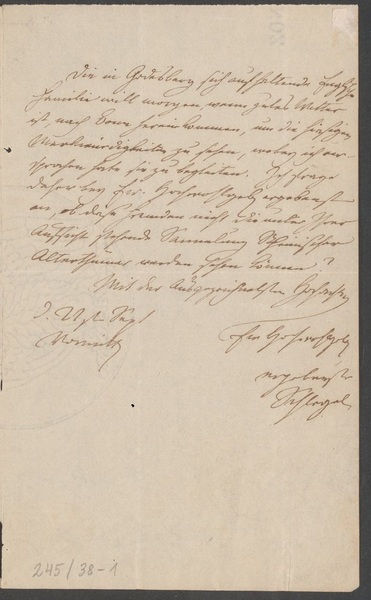 Die in Godesberg sich aufhaltende Englische
Familie will morgen, wenn gutes Wetter
ist, nach Bonn hereinkommen, um die hiesigen
Merkwürdigkeiten zu sehen, wobey ich ver-
sprochen habe sie zu begleiten. Ich frage
daher bey Ew. Hochwohlgeb ergebenst
an, ob diese Fremden nicht die unter Ihrer
Aufsicht stehende Sammlung Rheinischer
Alterthümer werden sehen können?
Mit der ausgezeichnetsten Hochachtung
d. Sept
Vormitt
Ew Hochwohlgeb
ergebenster
Schlegel
245/38-1